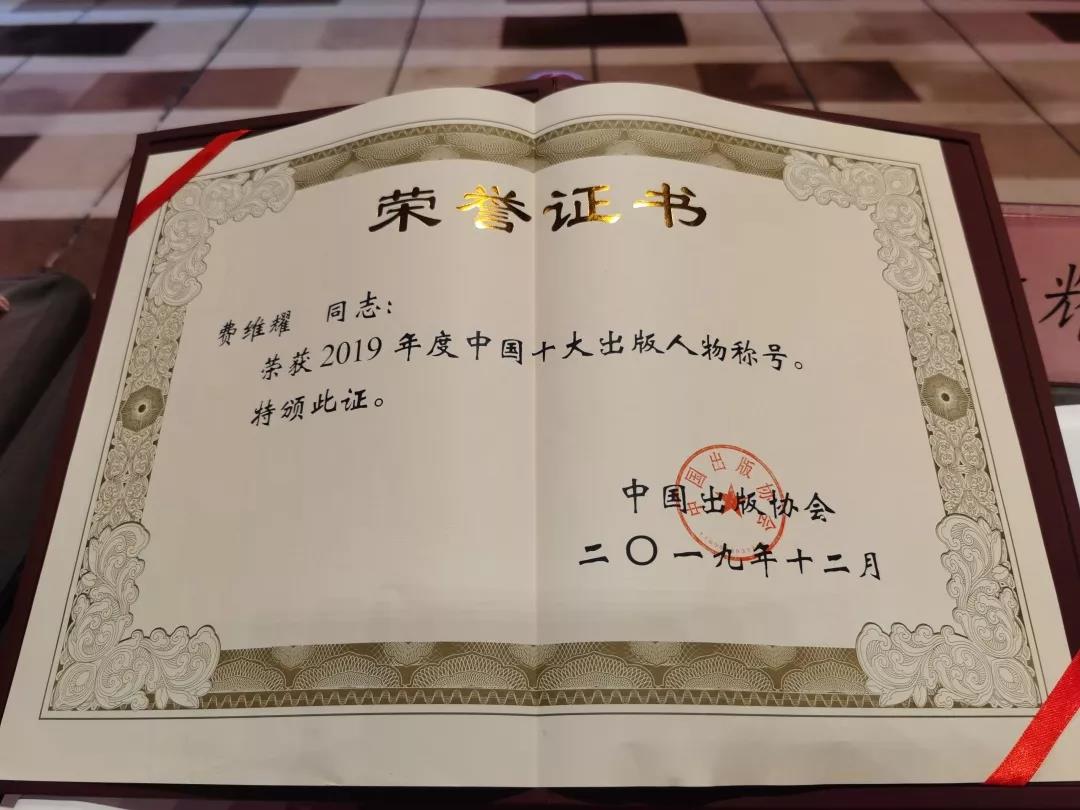 荣誉证书
费维耀 同志：
荣获2019年度中国十大出版人物称号。
特颁此证。
中国出版协会
中国出版协会
二〇一九年十二月